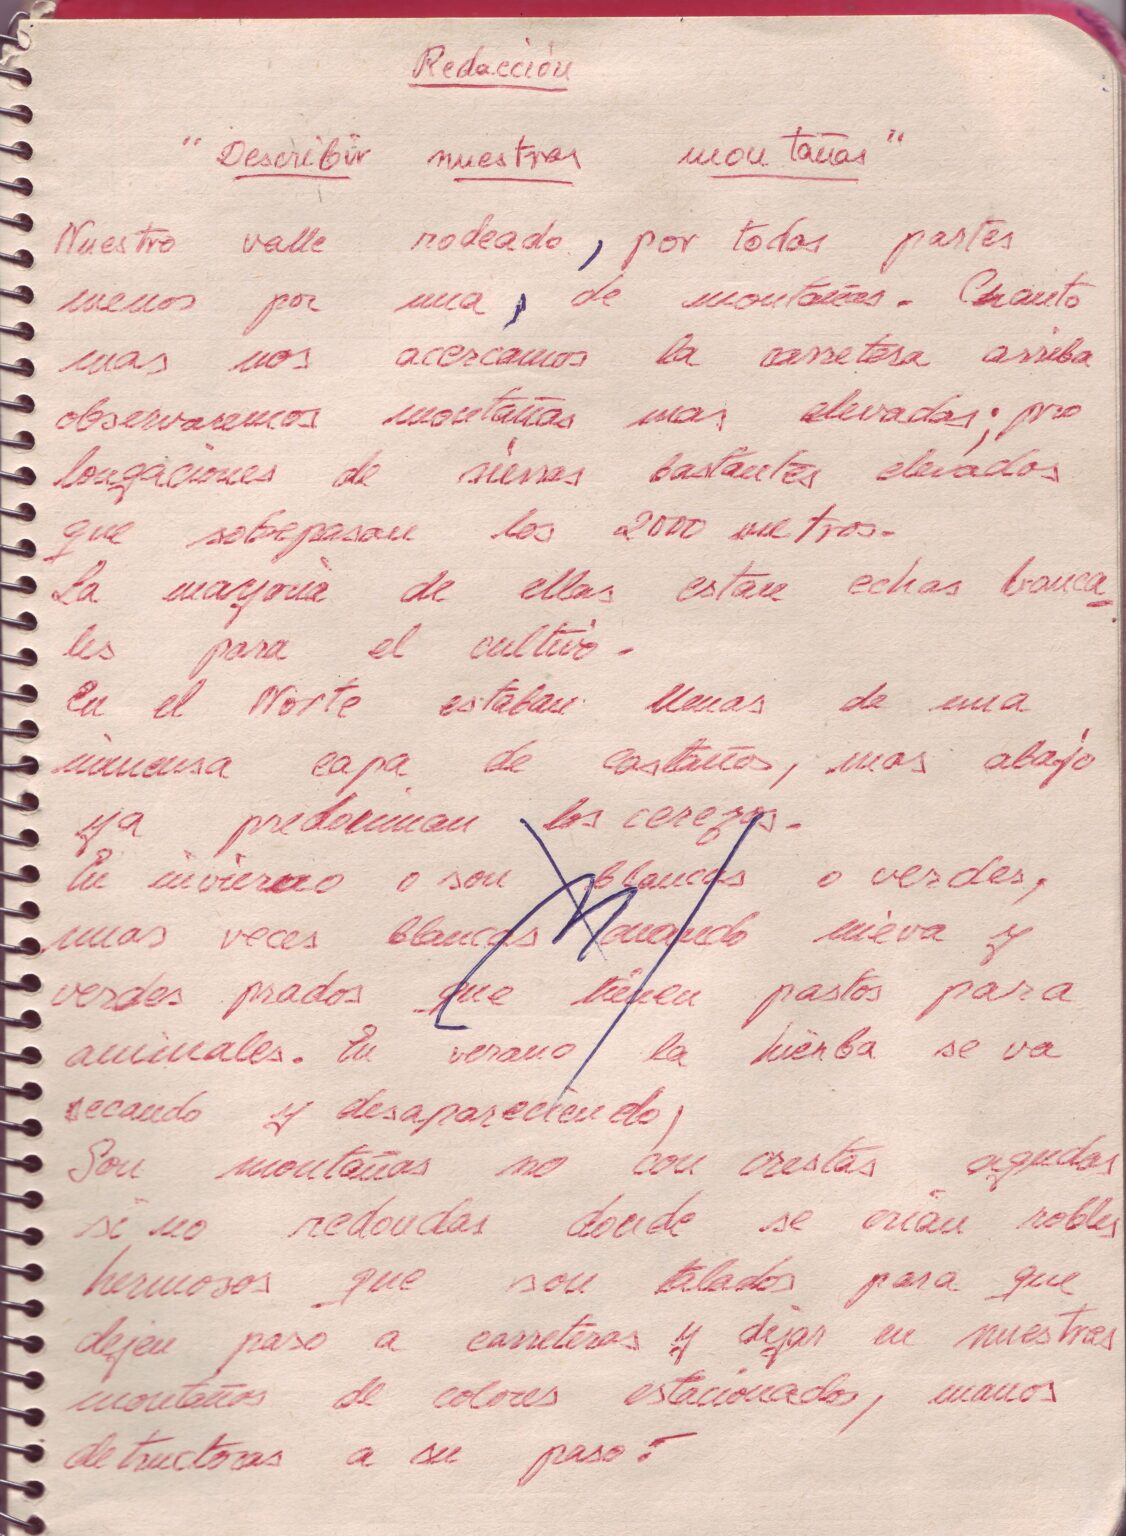 Redacción
"Describir nuestras montañas"
Nuestro valle rodeado, por todas partes
menos por una, de montañas. Cuanto
mas nos acercamos la carretera arriba
observaremos montañas mas elevadas; pro
longaciones de sierras bastantes elevadas
que sobrepasan los 2000 metros.
La mayoria de ellas estan echas banca-
les para el cultivo.
En el Norte estaban llenas de una
inmensa capa de castaños, mas abajo
ya predominan los cerezos.
En invierno o son blancas o verdes,
unas veces blancas cuando nieva y
verdes prados que tienen pastos para
animales. En verano la hierba se va
secando y desapareciendo,
Son montañas no con crestas agudas
si no redondas donde se crian robles
hermosos que son talados para que
dejen paso a carreteras y dejar en nuestras
montañas de colores estacionados, manos
detructoras a su paso.